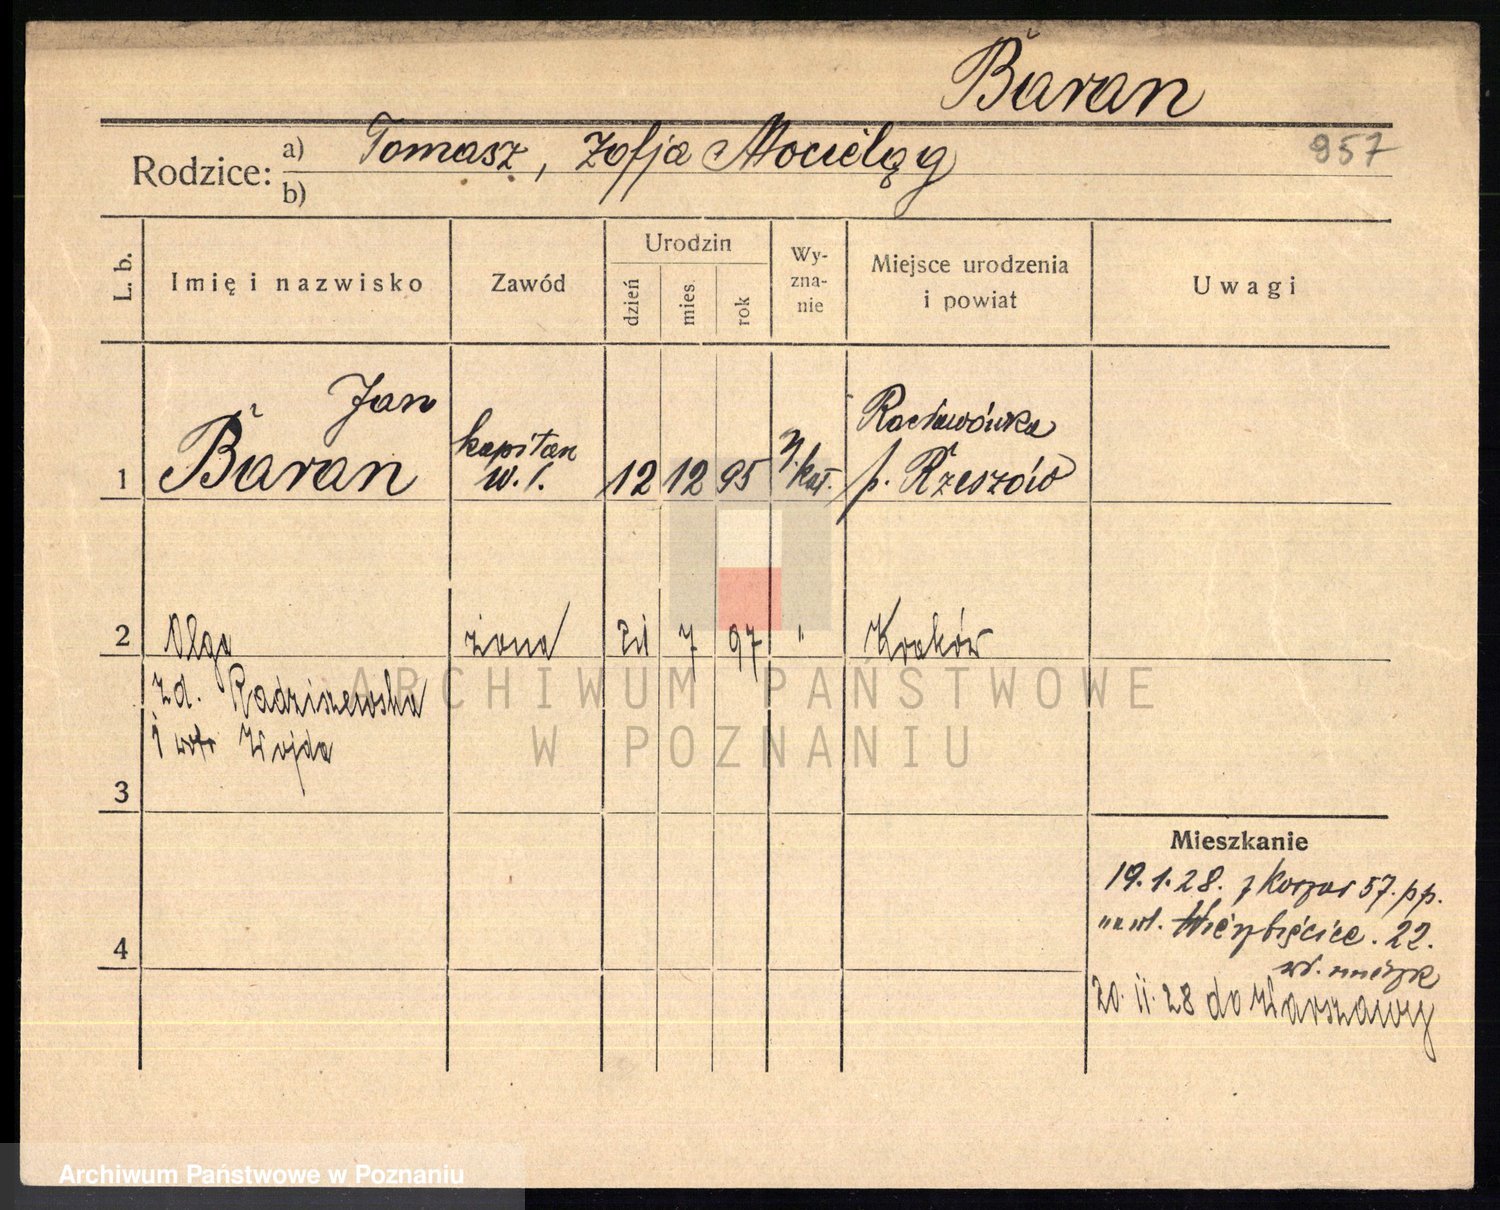 Baran
957
Rodzice: a) Tomasz, Zofja Mocieląg
b)
L. b. Imię i nazwisko Zawód Urodzin dzień mies. rok Wyznanie Miejsce urodzenia i powiat Uwagi
Jan Racławówka
1 Baran kapitan w. s. 12 12 95 rz. kat. p. Rzeszów
2 Olga żona 7 97 " Kraków
zd. Radziszewska
i Wojda
3
Mieszkanie
19.1.28. z Koszar 57. pp.
na ul. Wierzbięcice. 22.
4
20. II. 28 do Warszawy
ARCHIWUM PAŃSTWOWE
W POZNANIU
Archiwum Państwowe w Poznaniu